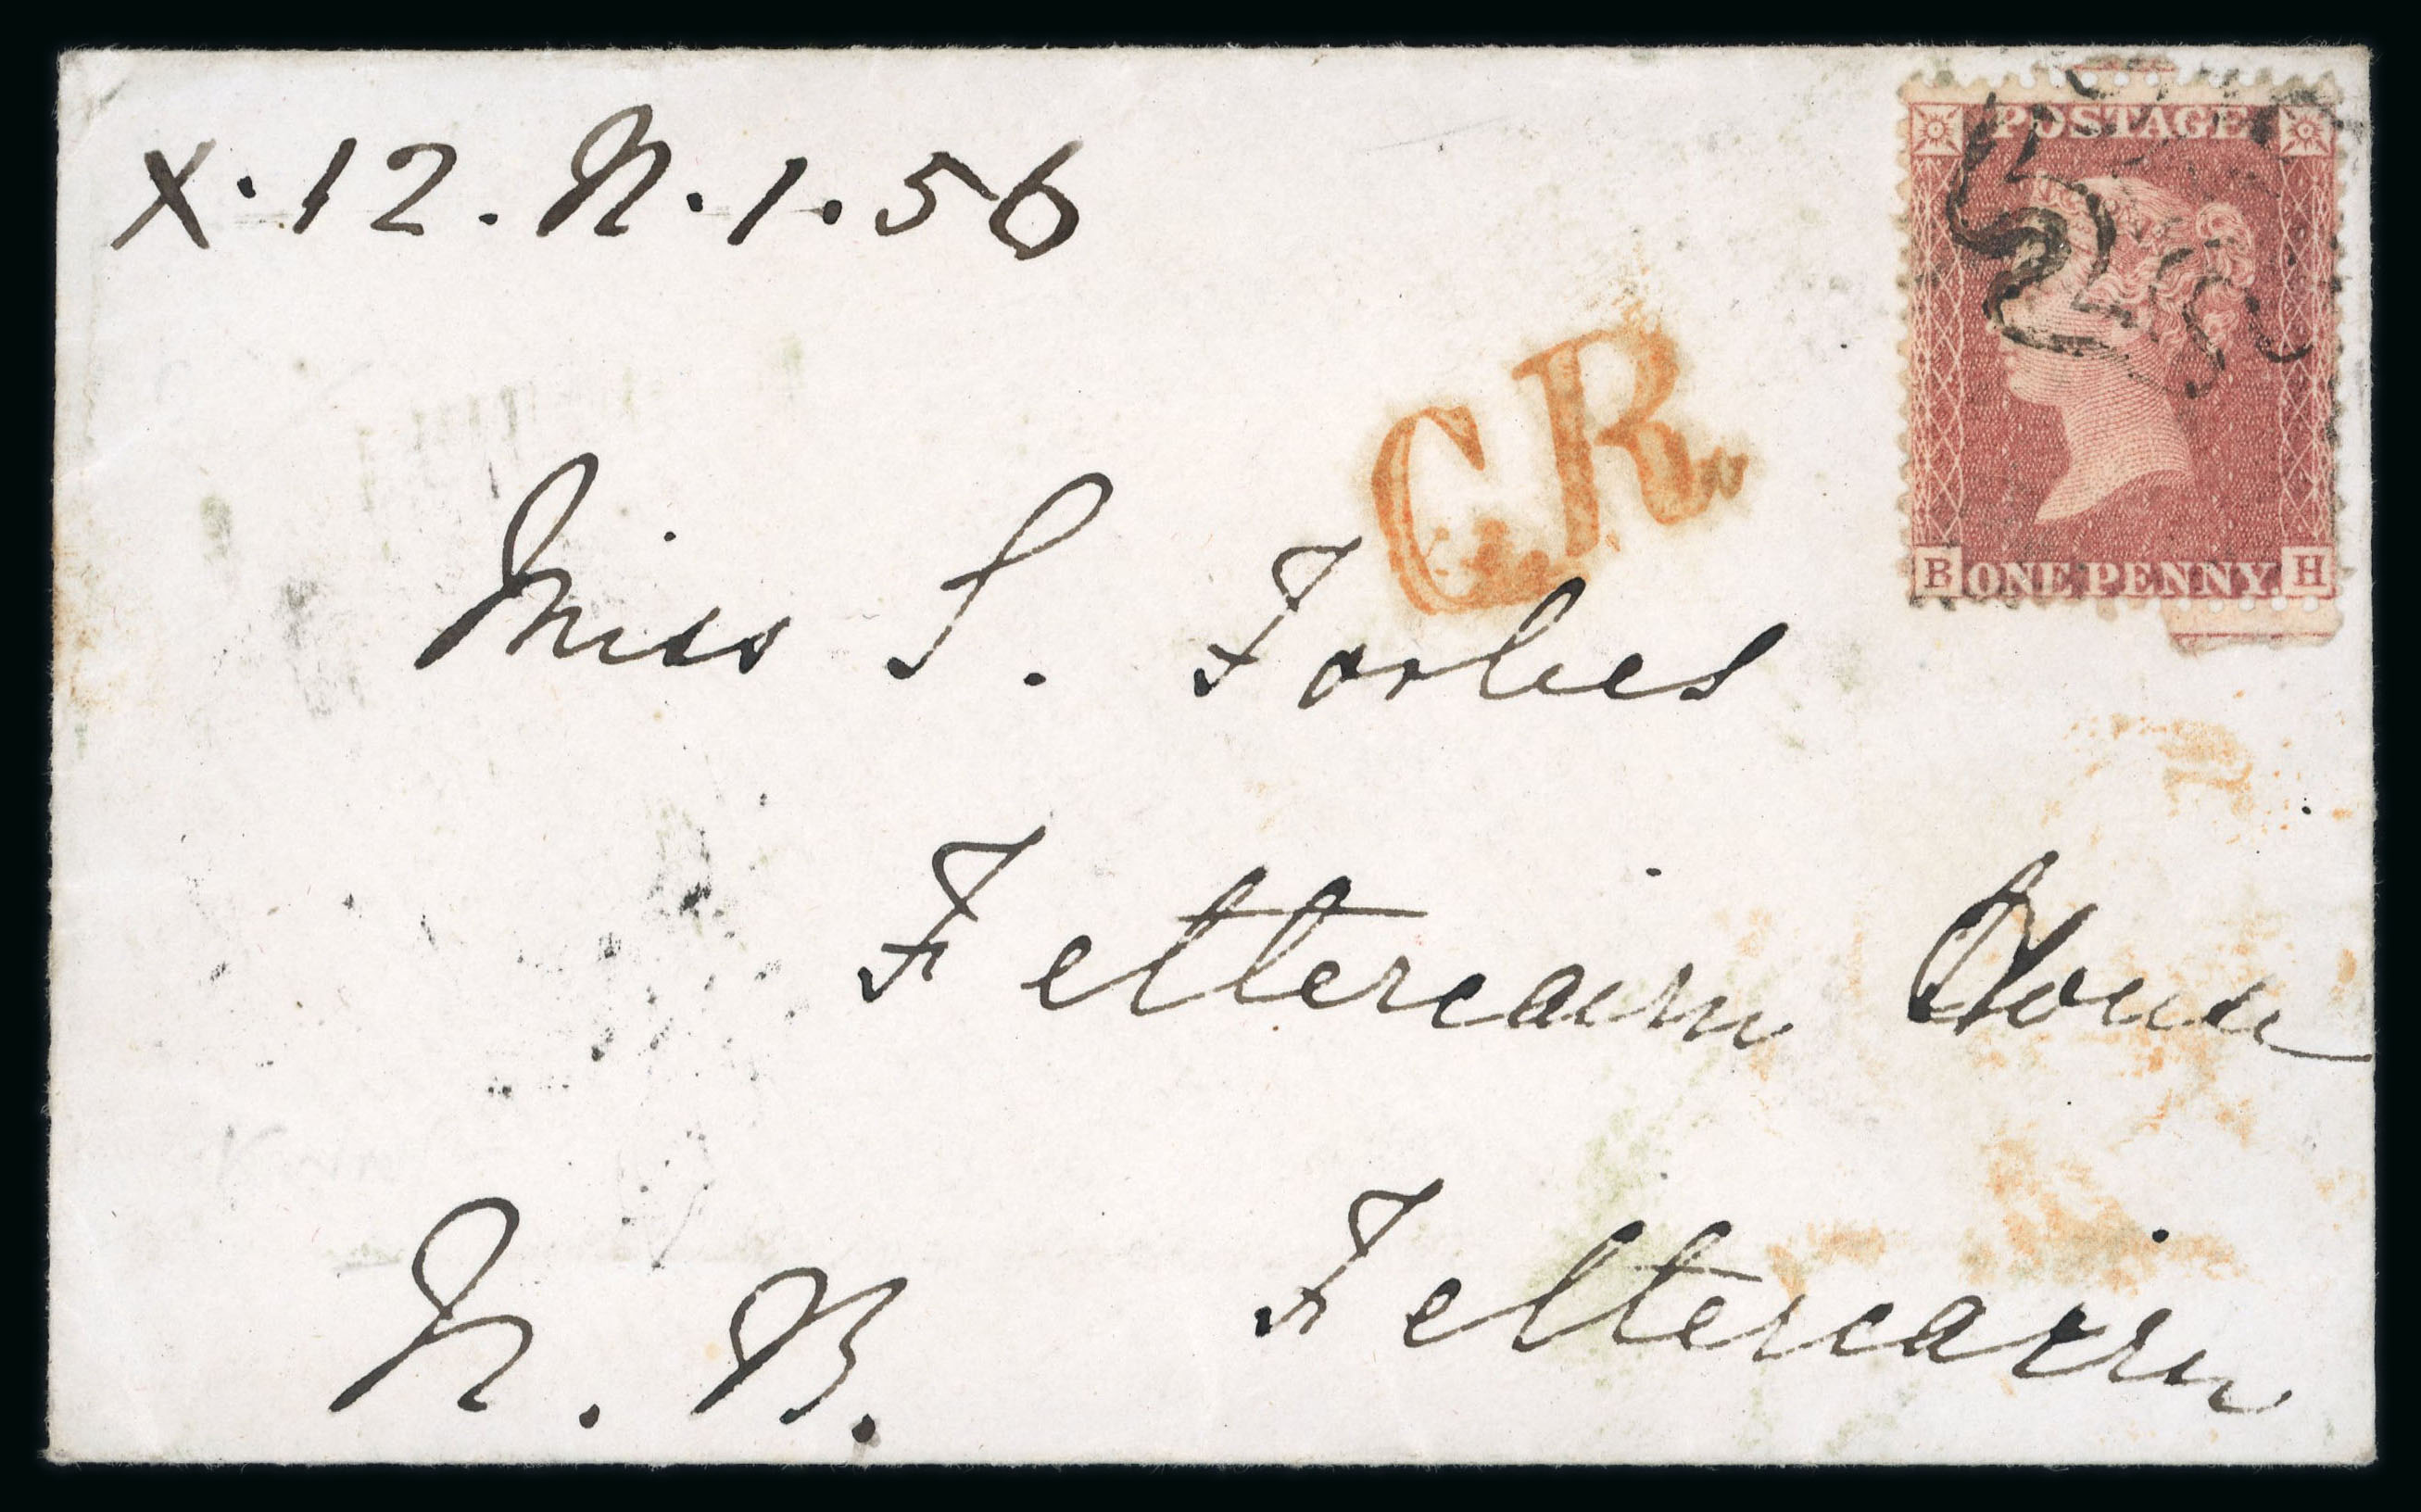 X.12.N.1.56
POSTAGE
C.R.
B ONE PENNY. H
Miss S. Forbes
Fettercairn House
Fettercairn
N. B.